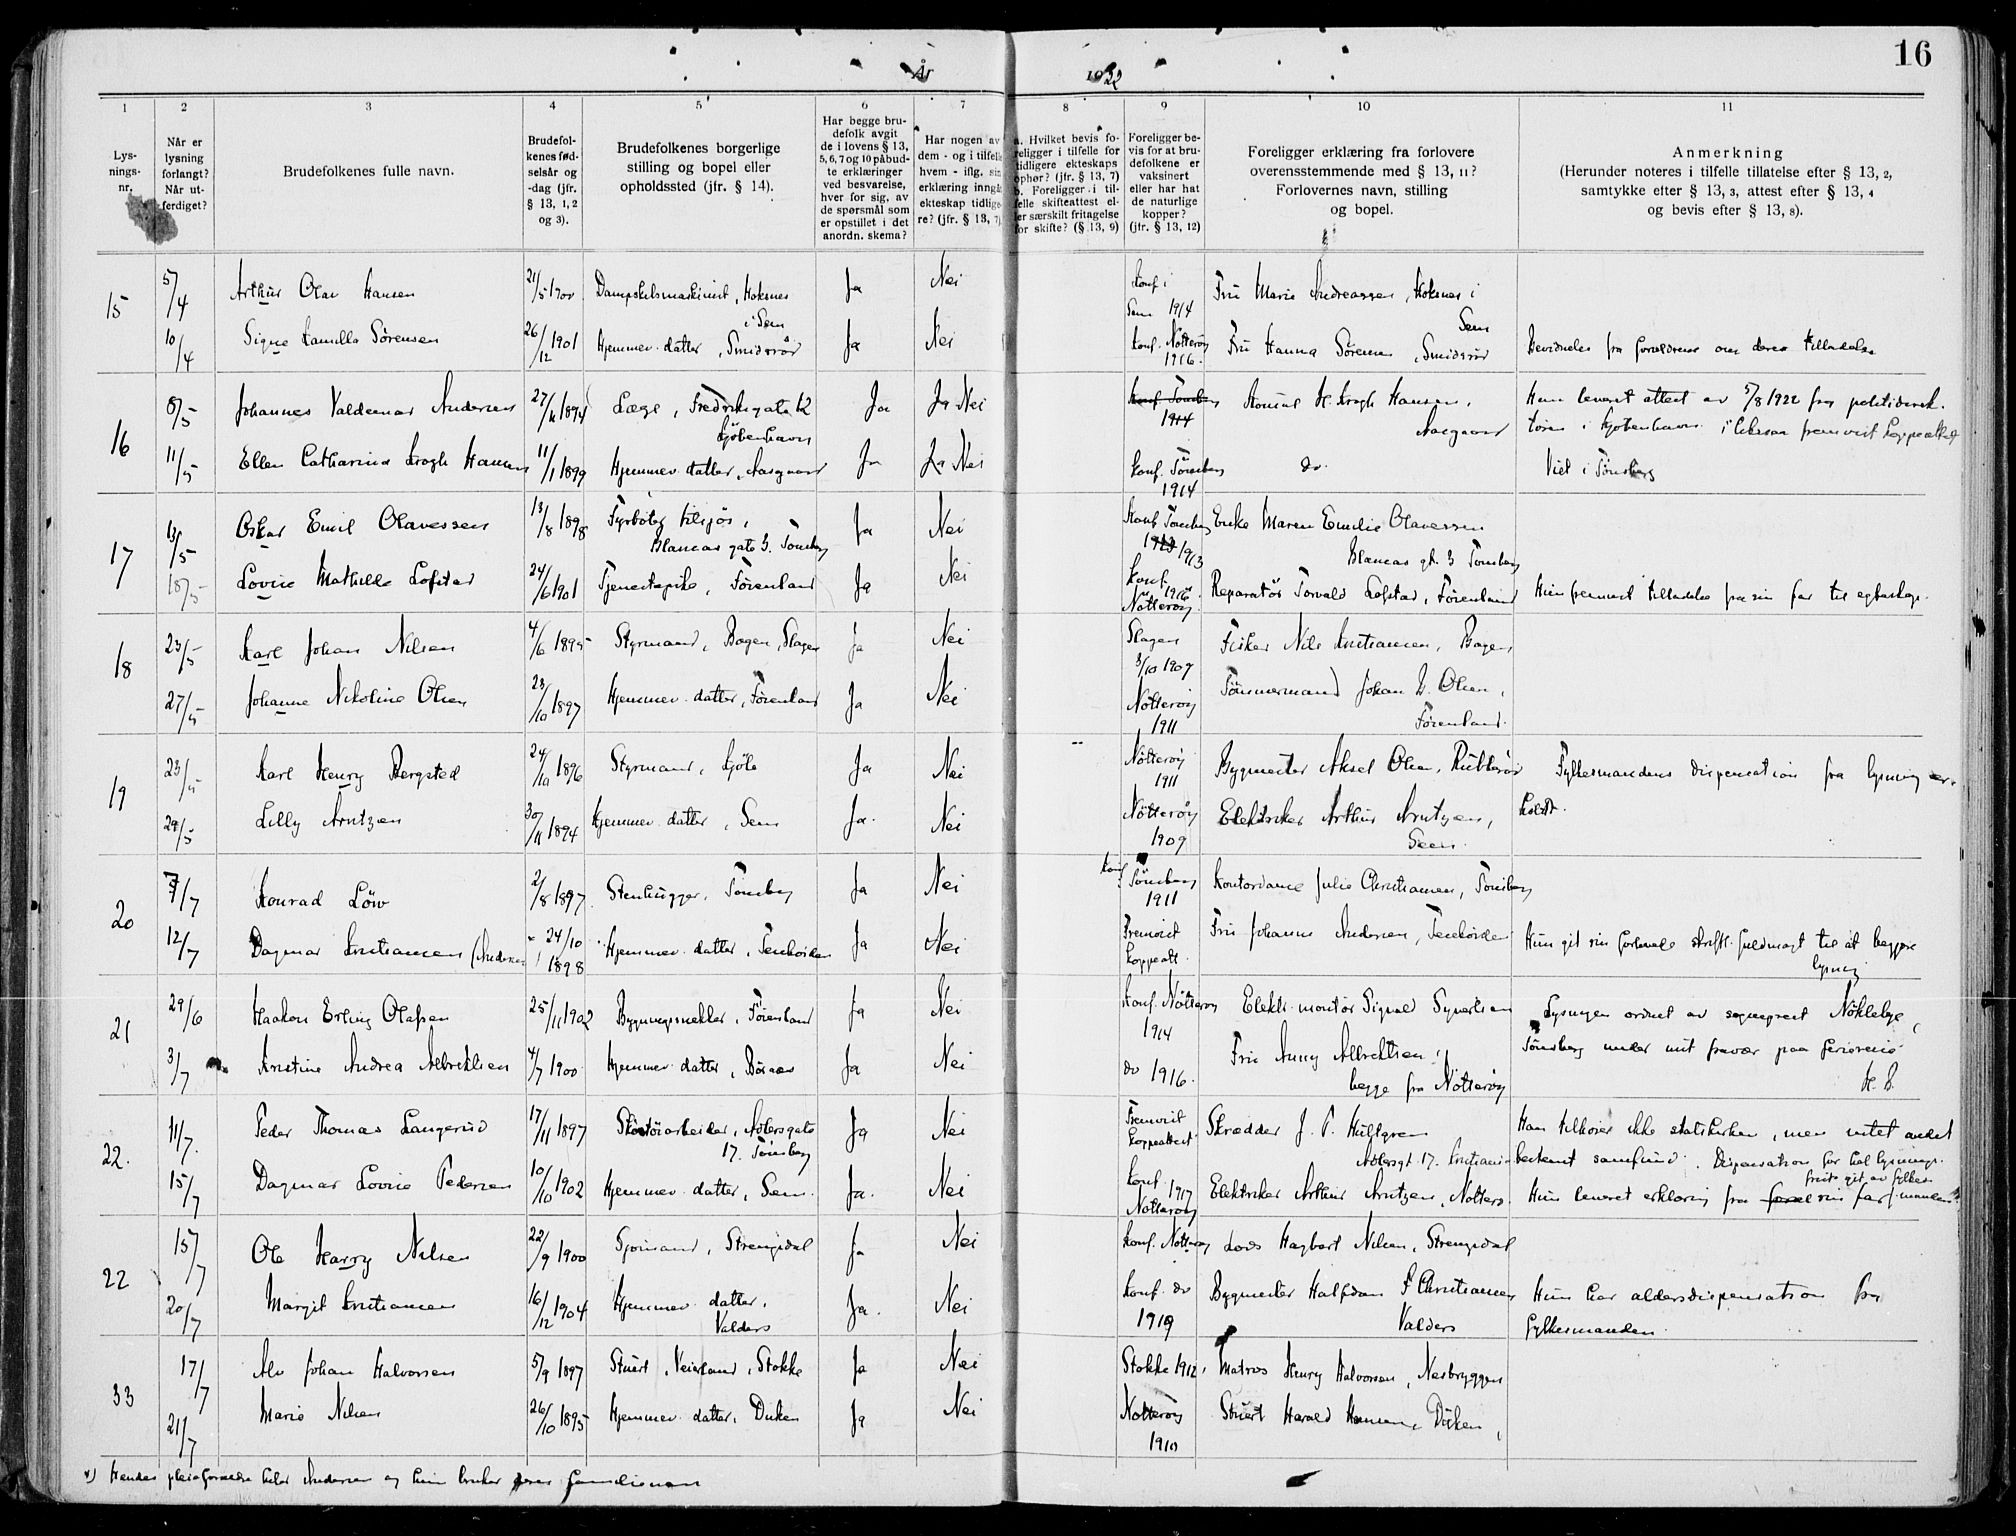 16
År 1922
1 2 3 4 5 6 7 8 9 10 11
Lysningsnr.
Når er lysning forlangt? Når utferdiget?
Brudefolkenes fulle navn.
Brudefolkenes fødselsår og -dag (jfr. § 13, 1, 2 og 3).
Brudefolkenes borgerlige stilling og bopel eller opholdssted (jfr. § 14).
Har begge brudefolk avgit de i lovens § 13, 5, 6, 7 og 10 påbudte erklæringer ved besvarelse, hver for sig, av de spørsmål som er opstillet i det anordn. skema?
Har nogen av dem - og i tilfelle hvem - iflg. sin erklæring inngått ekteskap tidligere? (jfr. § 13, 7)
a. Hvilket bevis foreligger i tilfelle for tidligere ekteskaps ophør? (jfr. § 13, 7) b. Foreligger i tilfelle skifteattest eller særskilt fritagelse for skifte? (§ 13, 9)
Foreligger bevis for at brudefolkene er vaksinert eller har hat de naturlige kopper? (jfr. § 13, 12)
Foreligger erklæring fra forlovere overensstemmende med § 13, 11? Forlovernes navn, stilling og bopel.
Anmerkning
(Herunder noteres i tilfelle tillatelse efter § 13, 2, samtykke efter § 13, 3, attest efter § 13, 4 og bevis efter § 13, 8).
15 5/4 Arthur Olav Hansen 21/5 1900 Dampskibsmaskinist, Hoksnes i Sem Ja Nei Konf i Sem 1914 Fru Marie Andreassen, Hoksnes i Sem
10/4 Signe Kamilla Sørensen 26/12 1901 Hjemmev. datter, Smidsrød Ja Nei Konf. Nøtterøy 1916. Fru Hanna Sørensen, Smidsrød
16 8/5 Johannes Valdemar Andersen 27/11 1894 Læge, Fredriksgate 12 Kjøbenhavn Ja Ja Nei Konf Tønsberg 1914 Konsul H. Krogh Hansen, Aasgaard
11/5 Ellen Catharina Krogh Hansen 11/1 1899 Hjemmev. datter, Aasgaard Ja Ja Nei Konf. Tønsberg 1914 do. Viet i Tønsberg
17 13/5 Oskar Emil Olavessen 13/8 1898 Fyrbøter tilsjøs, Blancas gate 3. Tønsberg Ja Nei Konf Tønsberg 1913 Enke Maren Emilie Olavessen Blancas gt. 3 Tønsberg
18/5 Lovise Mathilde Lofstad 24/6 1901 Tjenestepike, Førenland Ja Nei Konf. 1916 Nøtterøy Reparatør Torvald Lofstad, Førenland Hun fremvist tilladelse fra sin far til egteskap.
18 23/5 Karl Johan Nilsen 4/6 1895 Styrmand, Bogen, Slagen Ja Nei Slagen 3/10 1909 Fisker Nils Kristiansen, Bogen,
27/5 Johanne Nikoline Olsen 23/10 1897 Hjemmev. datter, Førenland Ja Nei Nøtterøy 1911 Tømmermand Johan L. Olsen, Førenland.
19 23/5 Karl Henry Bergsted 24/10 1896 Styrmand, Kjøle Ja Nei Nøtterøy 1911 Bygmester Aksel Olsen, Fylkesmandens dispensation fra lysning er-
29/5 Lilly Arntzen 30/11 1894 Hjemmev. datter, Sem Ja. Nei Nøtterøy 1909 Elektriker Arthur Arntzen, Sem. holdt.
20 7/7 Konrad Löw 2/8 1897 Stenhugger, Tønsberg Ja Nei Konf Tønsberg 1911 Kontordame Julie Christiansen, Tønsberg
12/7 Dagmar Kristiansen (Andersen 24/10 1898 Hjemmev. datter, Ja Nei Fremvist koppeatt. Fru Johanne Andersen, Hun git sin forlovede skriftl. fuldmagt til at begjære lysning
21 29/6 Haakon Erling Olafsen 25/11 1902 Bygningssnekker, Førenland Ja Nei Konf. Nøtterøy 1914 Elektr. montør Sigurd Syvertsen Lysningen ordnet av sogneprest Nøklebye,
3/7 Kristine Andrea Albrektsen 4/7 1900 Hjemmev. datter, Ja Nei do 1916. Fru Anny Albrektsen, begge fra Nøtterøy Tønsberg under mit fravær paa feriereise
22. 11/7. Peder Thomas Langerud 17/11 1897 Skotøiarbeider, Adlersgate 17. Tønsberg Ja Nei Fremvist koppeattest Skrædder J. P. Hultgren Adlersgt. 17. Han tilhører ikke statskirken, men intet andet bestemt samfund. Dispensation for hel lysnings-frist git av fylkes-manden.
15/7 Dagmar Lovise Pedersen 10/10 1902 Hjemmev. datter, Sem. Ja. Nei Konf. 1917 Nøtterøy Elektriker Arthur Arntzen, Nøtterø. Hun leveret erklæring fra sin far
22 15/7 Ole Harry Nilsen 22/9 1900 Sjømand, Strengsdal Ja Nei Konf. Nøtterøy Lods Hagbart Nilsen, Strengsdal
20/7 Margit Kristiansen 16/12 1904 Hjemmev. datter, Valders Ja. Nei Konf. do 1919 Bygmester Halfdan F Christiansen Valders Hun har aldersdispensation fra fylkesmanden.
33 17/7 Alv Johan Halvorsen 5/9 1897 Stuert, Veierland, Stokke Ja Nei Stokke 1912, Matros Henry Halvorsen, Nesbryggen
21/7 Marie Nilsen 26/10 1895 Hjemmev. datter, Duken Ja Nei Nøtterøy 1910 Stuert Harald Hansen, Duken,
x) Hendes pleieforældre heter Andersen og hun bruker deres familienavn